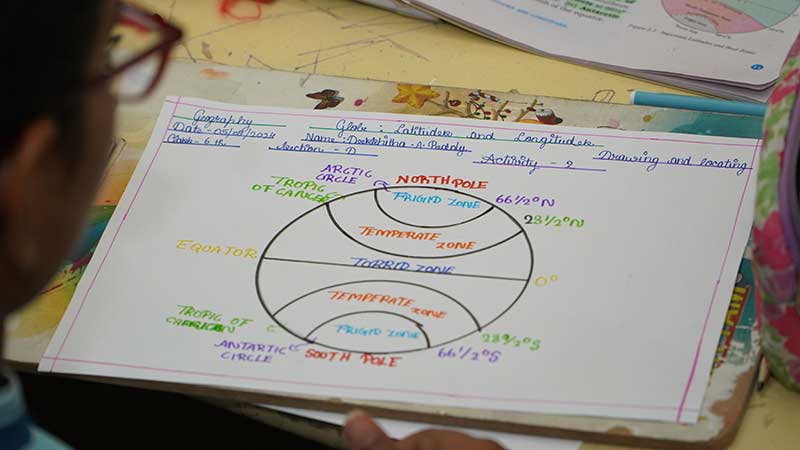 Geography
Globe : Latitudes and Longitudes
Date :- 05/08/2024
Name :
A. Reddy
Activity - 2
Drawing and locating
Class - 6 th
Section - D
ARCTIC CIRCLE
NORTH POLE
TROPIC OF CANCER
FRIGID ZONE
66 1/2°N
23 1/2°N
TEMPERATE ZONE
EQUATOR
TORRID ZONE
0°
TEMPERATE ZONE
TROPIC OF
FRIGID ZONE
23 1/2°S
ANTARTIC CIRCLE
SOUTH POLE
66 1/2°S
of the equator.
Antarctic